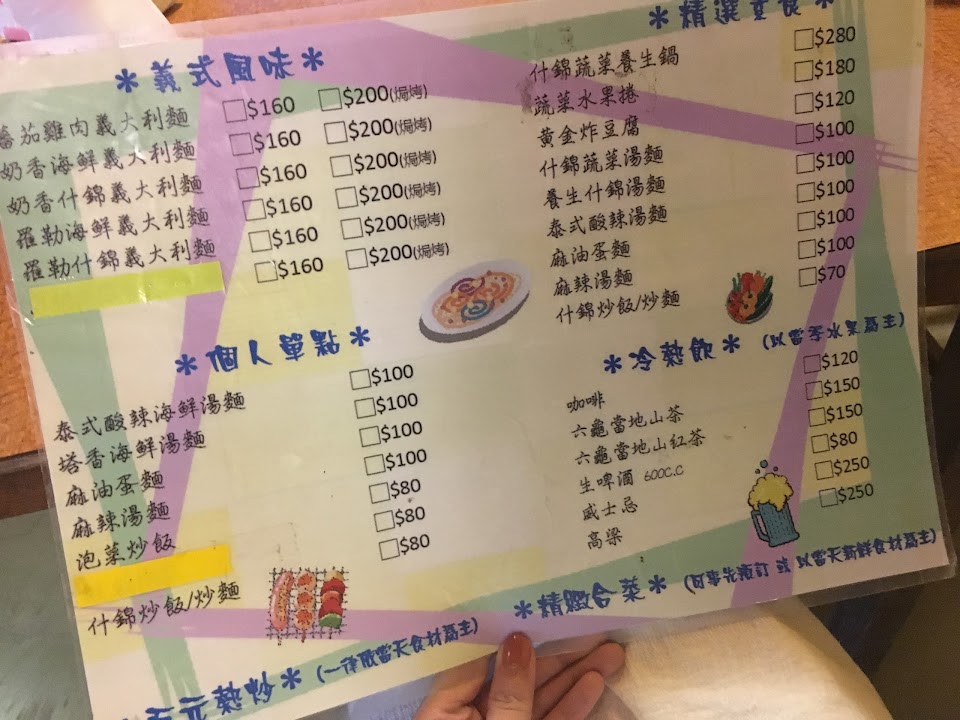 *義式風味*
蕃茄雞肉義大利麵 □$160 □$200(焗烤)
奶香海鮮義大利麵 □$160 □$200(焗烤)
奶香什錦義大利麵 □$160 □$200(焗烤)
羅勒海鮮義大利麵 □$160 □$200(焗烤)
羅勒什錦義大利麵 □$160 □$200(焗烤)
□$160 □$200(焗烤)
*個人單點*
泰式酸辣海鮮湯麵 □$100
塔香海鮮湯麵 □$100
麻油蛋麵 □$100
麻辣湯麵 □$100
泡菜炒飯 □$80
□$80
什錦炒飯/炒麵 □$80
元熱炒* (一律依當天食材爲主)
*精選素食
什錦蔬菜養生鍋 □$280
蔬菜水果捲 □$180
黃金炸豆腐 □$120
什錦蔬菜湯麵 □$100
養生什錦湯麵 □$100
泰式酸辣湯麵 □$100
麻油蛋麵 □$100
麻辣湯麵 □$100
什錦炒飯/炒麵 □$70
*冷熱飲* (以當季水果爲主)
咖啡 □$120
六龜當地山茶 □$150
六龜當地山紅茶 □$150
生啤酒 600C.C □$80
威士忌 □$250
高梁 □$250
*精緻合菜* (可事先預訂 或 以當天新鮮食材爲主)